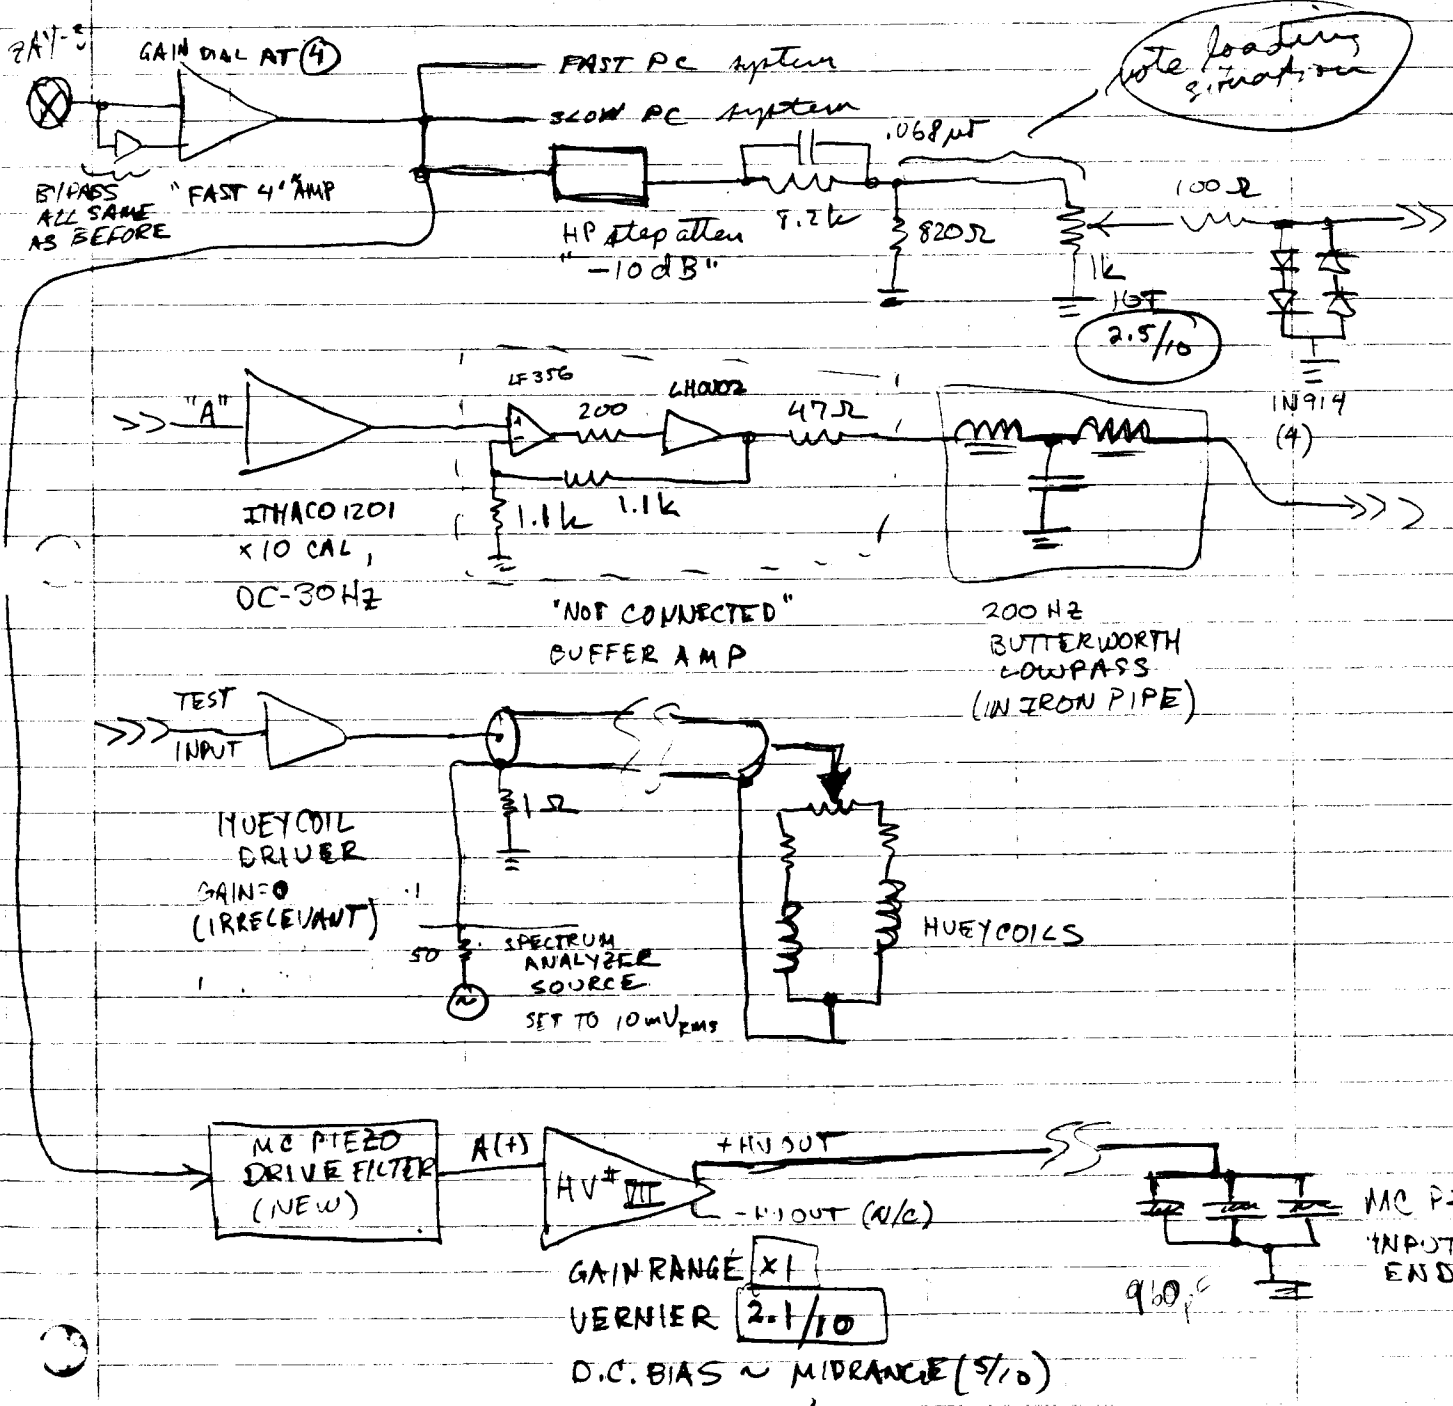 GAIN DIAL AT 4
FAST PC system
SLOW PC system
note loading
situation
BYPASS
ALL SAME
AS BEFORE
"FAST 4" AMP
.068µf
8.2k
HP step atten
"-10dB"
820Ω
1k
10T
2.5/10
100Ω
1N914
(4)
"A"
ITHACO 1201
×10 CAL,
DC-30HZ
LF356
200
LH0002
47Ω
1.1k
1.1k
"NOT CONNECTED"
BUFFER AMP
200 HZ
BUTTERWORTH
LOWPASS
(IN IRON PIPE)
TEST
INPUT
HUEYCOIL
DRIVER
GAIN=0
(IRRELEVANT)
1Ω
50
SPECTRUM
ANALYZER
SOURCE
SET TO 10mVRMS
HUEYCOILS
MC PIEZO
DRIVE FILTER
(NEW)
A(+)
HV# VII
+HV OUT
-HV OUT (N/C)
GAIN RANGE ×1
VERNIER 2.1/10
D.C. BIAS ~ MIDRANGE (5/10)
MC
INPUT
END